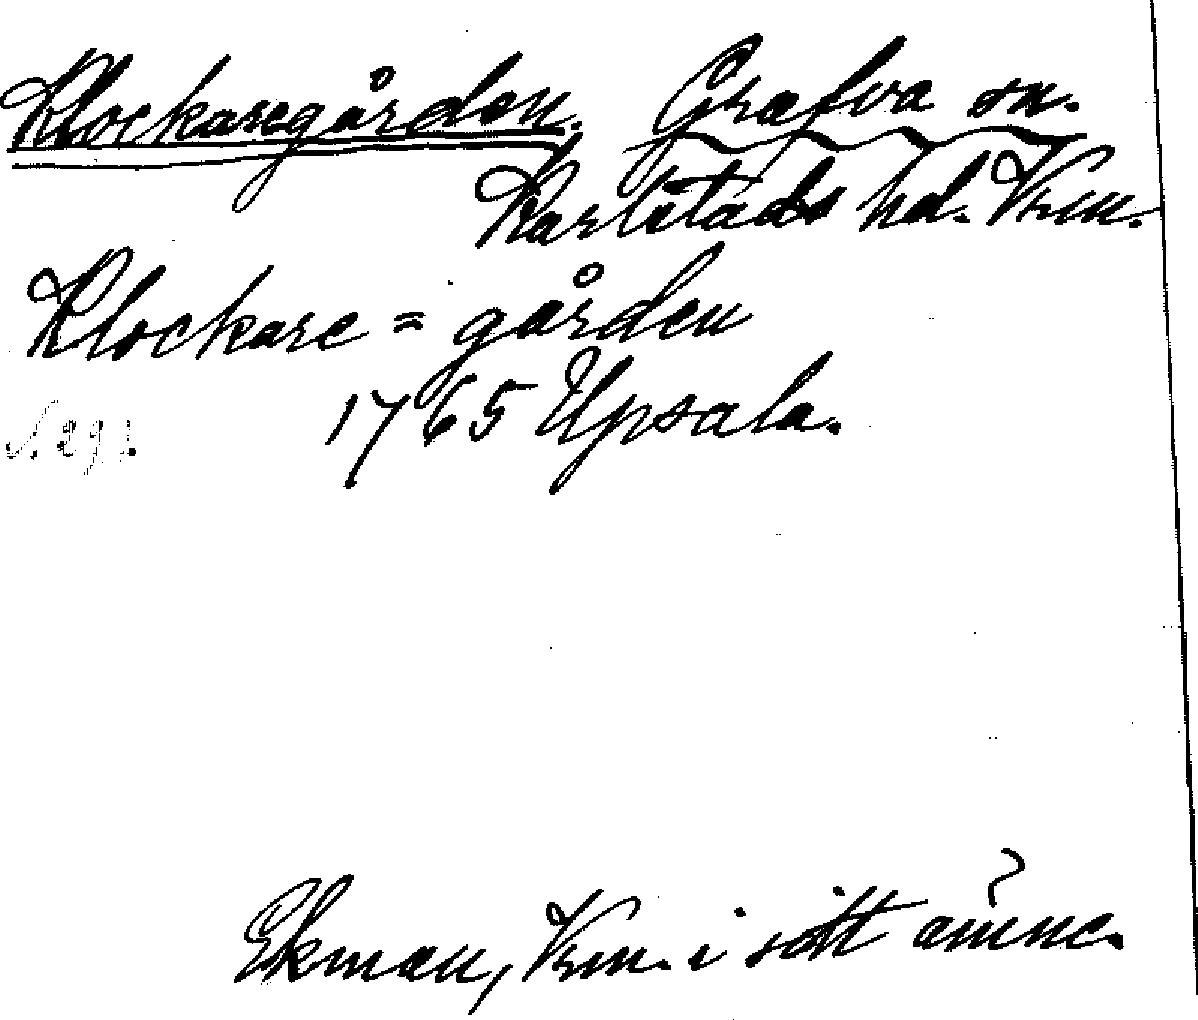 Klockaregården. Grafva sn.
Karlstads hd. Vrm.
Klockare = gården
1765 Upsala.
Ekman, Vrm. i sitt ämne.